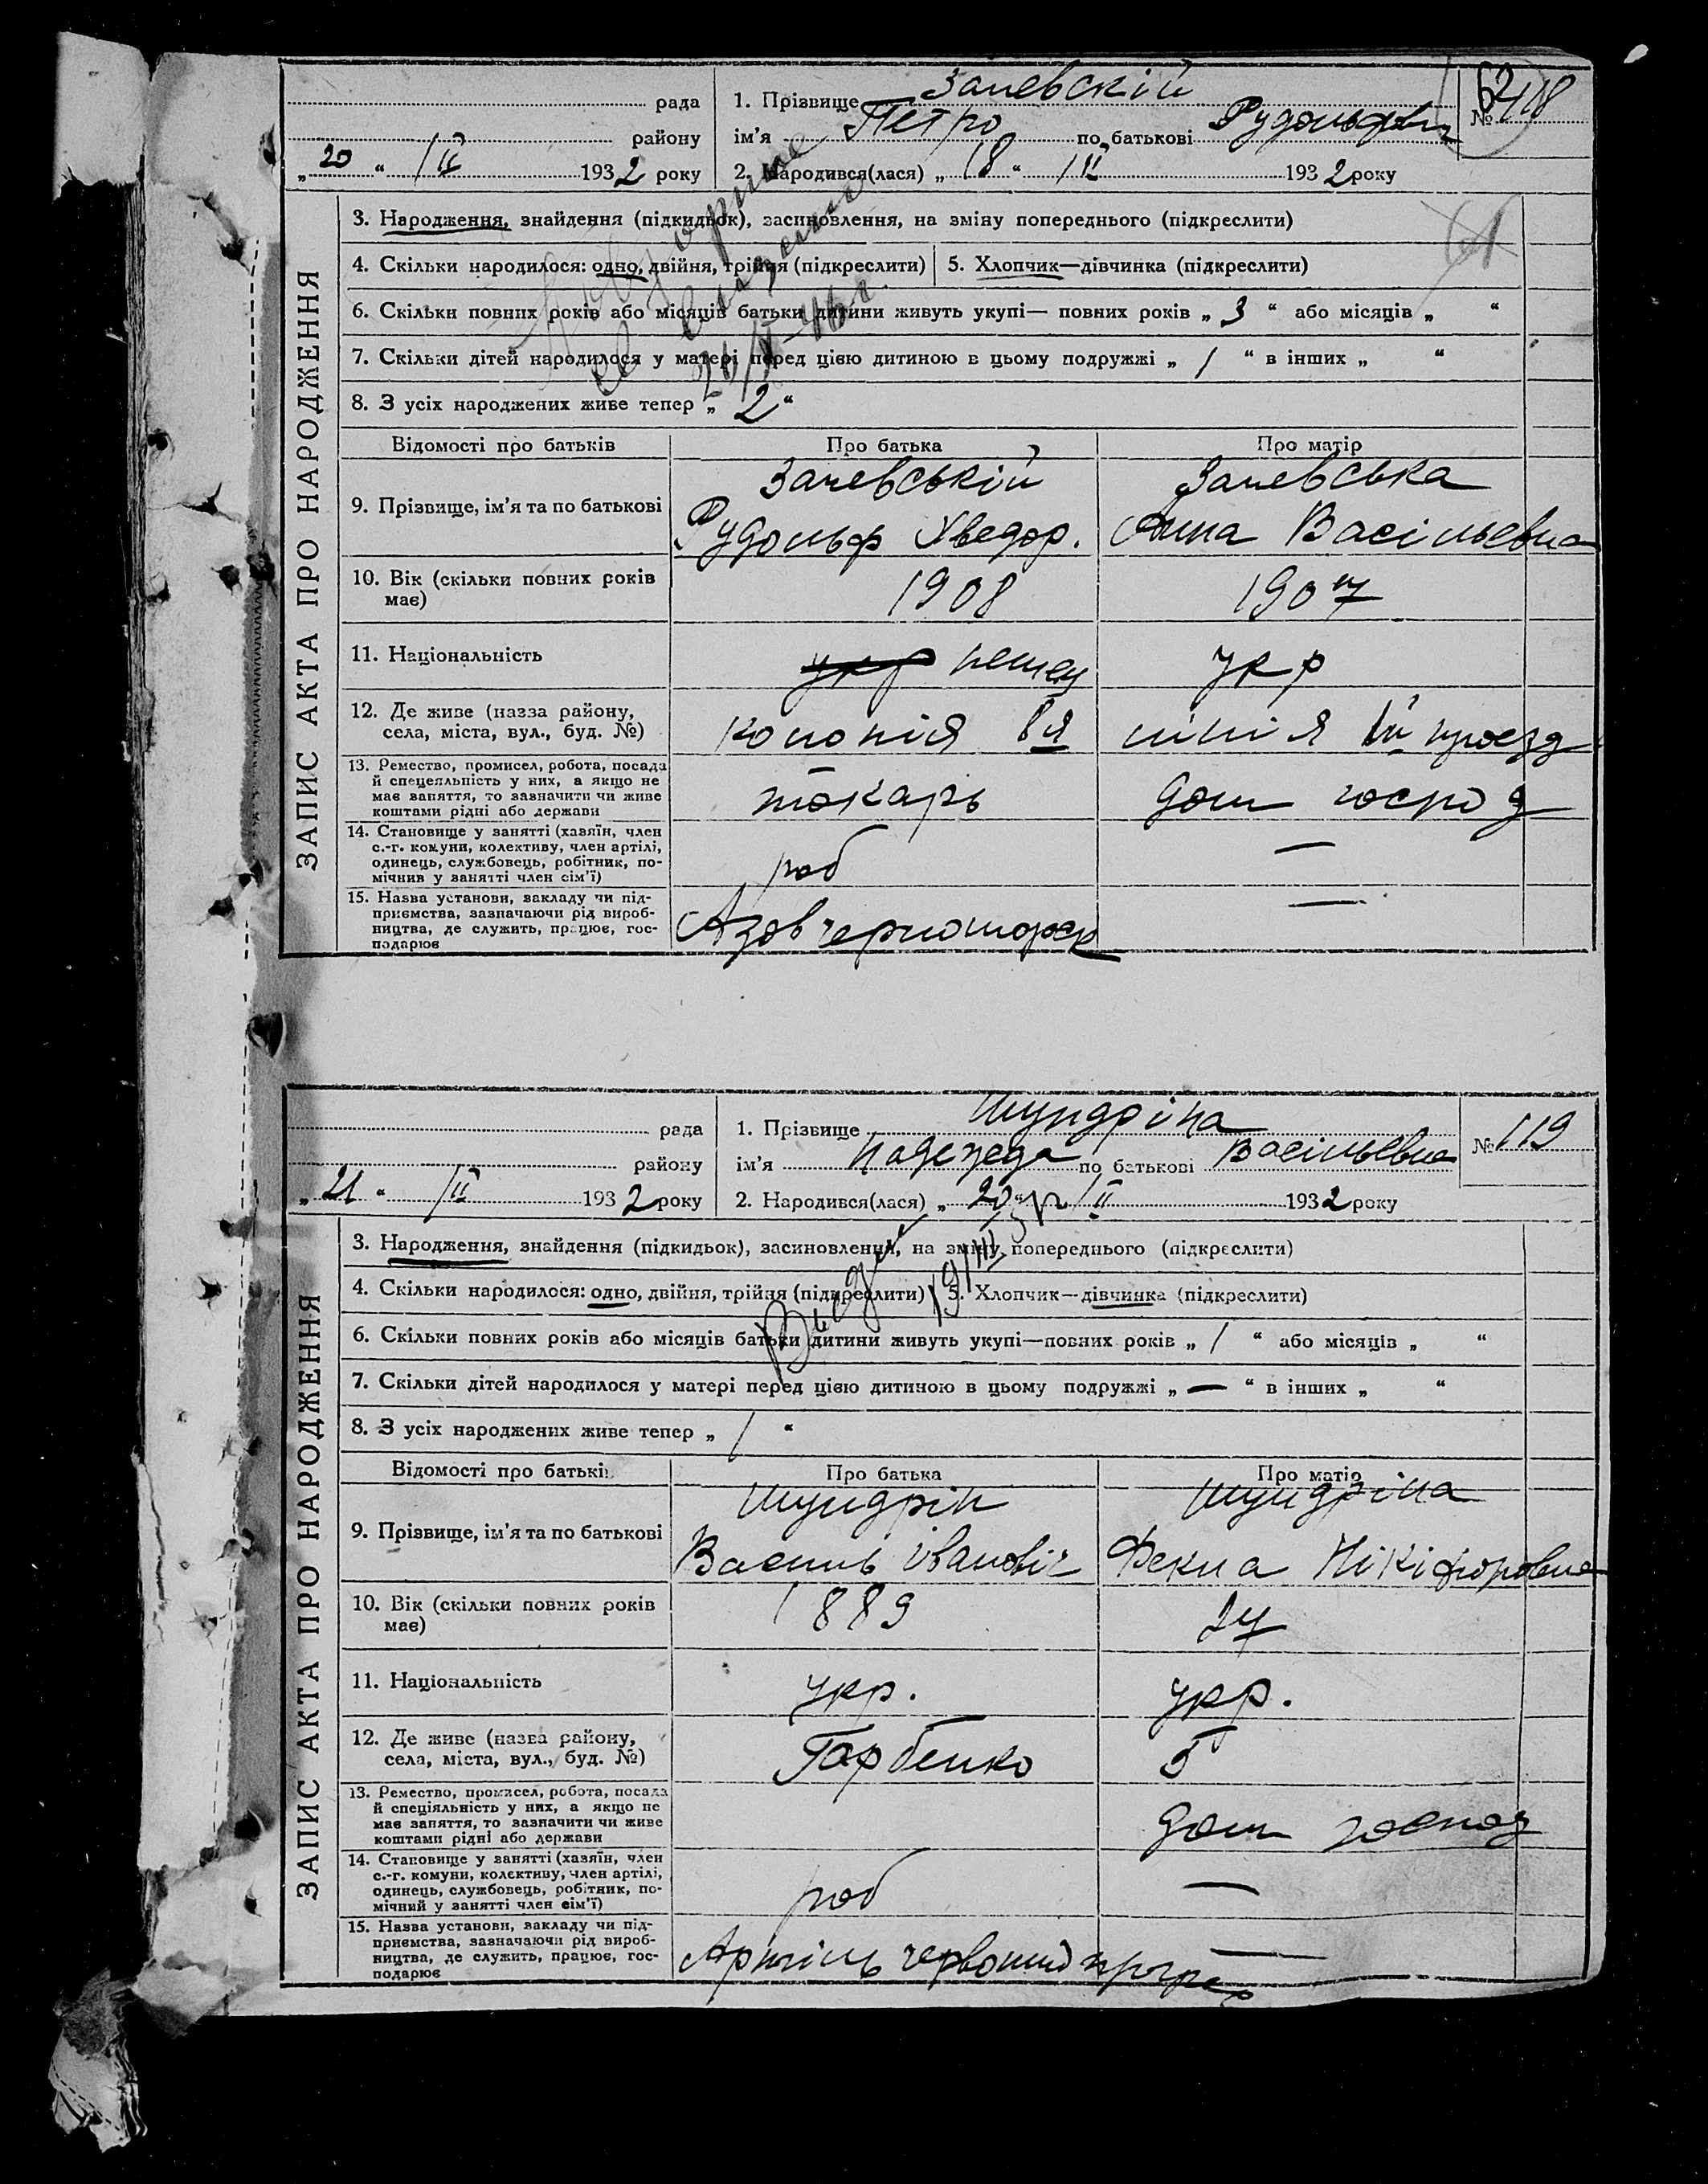 рада
району
„ 20 “ / II 1932 року
1. Прізвище Залевскій
ім’я Петро по батькові Рудольфович
2. Народився(лася) „ 18 “ / II 1932 року
№ 118
62
61
ЗАПИС АКТА ПРО НАРОДЖЕННЯ
3. Народження, знайдення (підкидьок), засиновлення, на зміну попереднього (підкреслити)
4. Скільки народилося: одно, двійня, трійня (підкреслити)
5. Хлопчик—дівчинка (підкреслити)
6. Скільки повних років або місяців батьки дитини живуть укупі— повних років „ 3 “ або місяців „ “
7. Скільки дітей народилося у матері перед цією дитиною в цьому подружжі „ 1 “ в інших „ “
8. З усіх народжених живе тепер „ 2 “
Відомості про батьків
Про батька
Про матір
9. Прізвище, ім’я та по батькові
Залевській
Рудольф Хведор.
Залевська
Анна Васільевна
10. Вік (скільки повних років
має)
1908
1907
11. Національність
укр немец
укр
12. Де живе (назва району,
села, міста, вул., буд. №)
колонія 8я лінія проезд
13. Ремество, промисел, робота, посада
й спецеяльність у них, а якщо не
має заняття, то зазначити чи живе
коштами рідні або держави
токарь
дом господ
14. Становище у занятті (хазяїн, член
с.-г. комуни, колективу, член артілі,
одинець, службовець, робітник, по-
мічник у занятті член сім’ї)
роб
—
15. Назва установи, закладу чи під-
приємства, зазначаючи рід вироб-
ництва, де служить, працює, гос-
подарює
Азовчерноморск
—
рада
району
„ 21 “ / II 1932 року
1. Прізвище Шундріна
ім’я Надежда по батькові Васільевна
2. Народився(лася) „ 20 “ / II 1932 року
№ 119
ЗАПИС АКТА ПРО НАРОДЖЕННЯ
3. Народження, знайдення (підкидьок), засиновлення, на зміну попереднього (підкреслити)
4. Скільки народилося: одно, двійня, трійня (підкреслити)
5. Хлопчик—дівчинка (підкреслити)
6. Скільки повних років або місяців батьки дитини живуть укупі—повних років „ 1 “ або місяців „ “
7. Скільки дітей народилося у матері перед цією дитиною в цьому подружжі „ — “ в інших „ “
8. З усіх народжених живе тепер „ 1 “
Відомості про батьків
Про батька
Про матір
9. Прізвище, ім’я та по батькові
Шундрін
Василь Івановіч
Шундріна
Фекла Нікіфоровна
10. Вік (скільки повних років
має)
1889
27
11. Національність
укр.
укр.
12. Де живе (назва району,
села, міста, вул., буд. №)
Горбенко 5
13. Ремество, промисел, робота, посада
й спеціяльність у них, а якщо не
має заняття, то зазначити чи живе
коштами рідні або держави
дом господ
14. Становище у занятті (хазяїн, член
с.-г. комуни, колективу, член артілі,
одинець, службовець, робітник, по-
мічний у занятті член сім’ї)
роб
—
15. Назва установи, закладу чи під-
приємства, зазначаючи рід вироб-
ництва, де служить, працює, гос-
подарює
Артіль
—